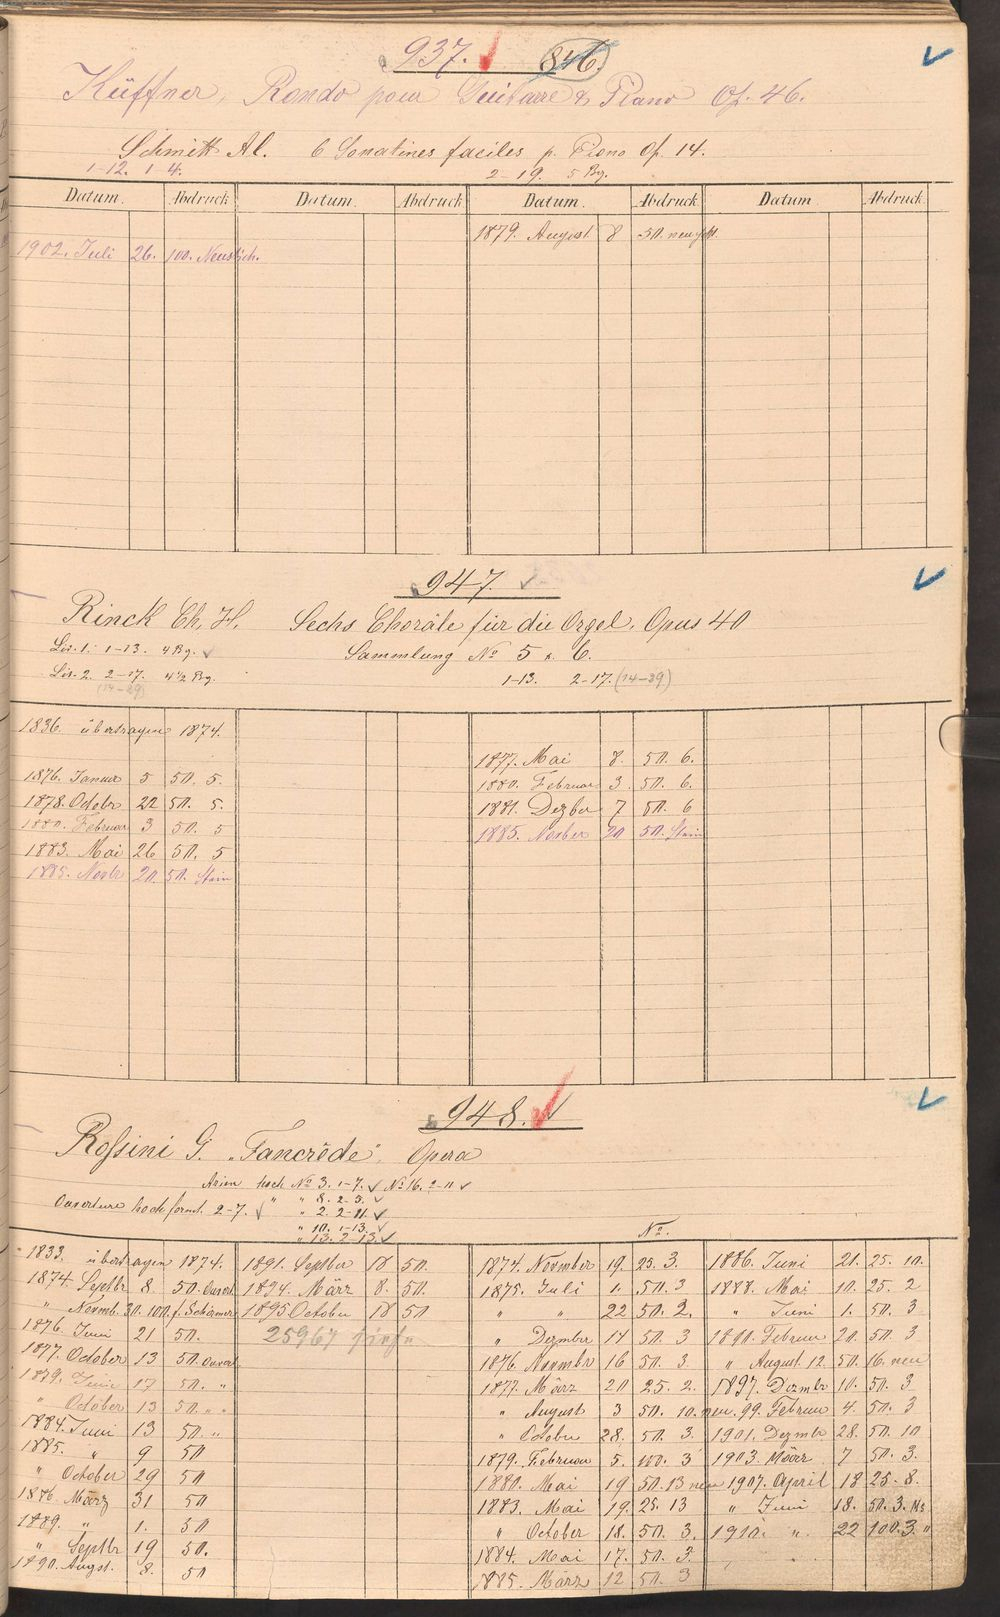 937. 846.
Küffner, Rondo pour Guitarre & Piano Op. 46.
Schmitt Al. 6 Sonatines faciles p. Piano Op. 14.
1-12. 1-4. 2-19. 5 Bg.
Datum. Abdruck Datum. Abdruck Datum. Abdruck Datum Abdruck
1879. August 8 50.
1902. Juli 26. 100.
947.
Rinck Ch. H. Sechs Choräle für die Orgel, Opus 40
Lis. 1. 1-13. 4 Bg. Sammlung No 5 u. 6.
Lis. 2. 2-17. 4 1/2 Bg. 1-13. 2-17. (14-29)
(14-29)
1836. übertragen 1874.
1877. Mai 8. 50. 6.
1876. Januar 5 50. 5.
1880. Februar 3. 50. 6.
1878. Octobr 22 50. 5.
1881. Dezber 7 50. 6
1880. Februar 3 50. 5
1885. Novber 20 50. Stein
1883. Mai 26 50. 5
1885. Novbr 20. 50. Stein
948.
Rossini G. "Tancrède" Opera
Arien hoch No 3. 1-7. No 16. 2-11
" " 8. 2-5.
Ouverture hochformt. 2-7. " 2. 2-11.
" 10. 1-13.
" 13. 2-13.
No.
1833. übertragen 1874. 1891. Septber 18 50. 1874. November 19. 25. 3. 1886. Juni 21. 25. 10.
1874. Septbr 8. 50. Ouvert. 1894. März 8. 50. 1875. Juli 1. 50. 3 1888. Mai 10. 25. 2
" Novmb. 30. 100. f. Schirmer 1895 October 18 50 " " 22 50. 2. " Juni 1. 50. 3
1876. Juni 21 50. 25967 " Dezmber 14 50. 3 1890. Februar 20. 50. 3
1877. October 13 50. Ouvert 1876. Novmbr 16 50. 3. " August. 12. 50. 16. neu
1879. Juni 17 50. " 1877. März 20 25. 2. 1897. Dezmbr 10. 50. 3
" October 13 50. " " August 3 50. 10. neu. 99. Februar 4. 50. 3
1884. Juni 13 50. " " October 28. 50. 3. 1901. Dezmbr 28. 50. 10
1885. " 9 50 1879. Februar 5. 100. 3 1903. März 7 50. 3.
" October 29 50 1880. Mai 19 50. 13 neu 1907. April 18 25. 8.
1886. März 31 50 1883. Mai 19. 25. 13 " Juni 18. 50. 3.
1889. " 1. 50 " October 18. 50. 3. 1910. " 22 100. 3. "
" Septbr 19 50. 1884. Mai 17. 50. 3.
1890. Augst. 8. 50 1885. März 12 50. 3